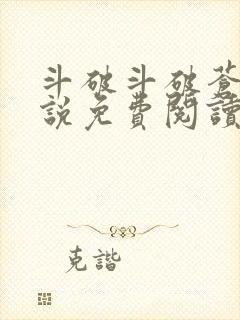 斗破斗破蒼
說免費閱讀
克諧